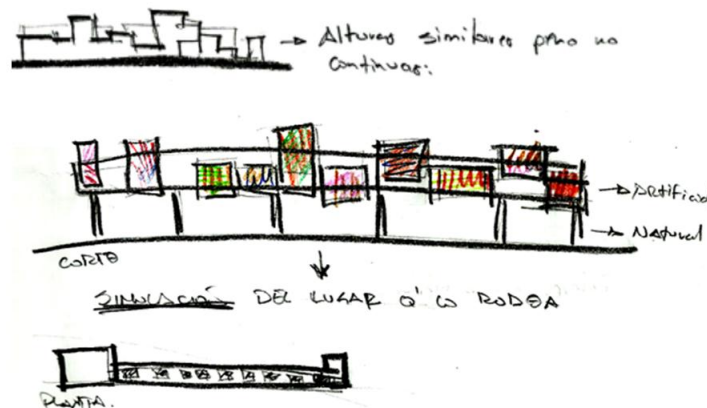 → Alturas similares pero no
continuas:
→ Artificial
→ Natural
CORTE
SIMULACIÓN DEL LUGAR Q' LO RODEA
PLANTA.